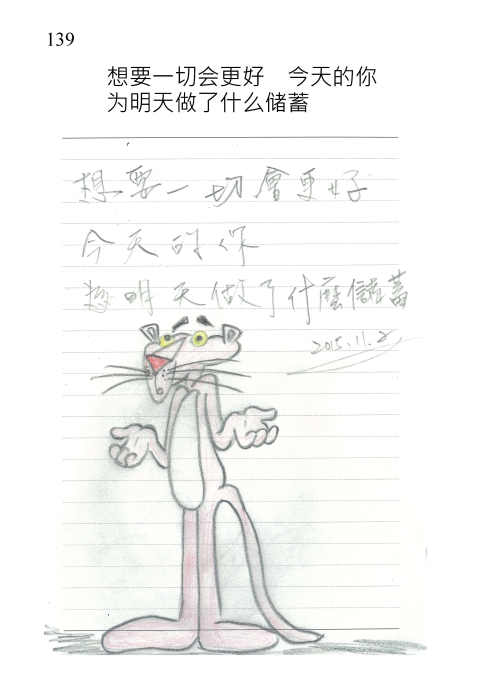 139
想要一切会更好　今天的你
为明天做了什么储蓄
想要一切會更好
今天的你
為明天做了什麼儲蓄
2015.11.2